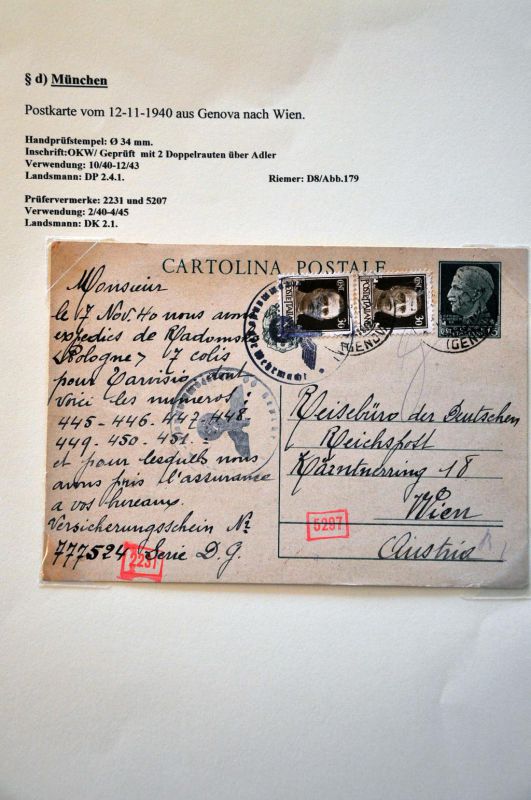 § d) München
Postkarte vom 12-11-1940 aus Genova nach Wien.
Handprüfstempel: Ø 34 mm.
Inschrift:OKW/ Geprüft mit 2 Doppelrauten über Adler
Verwendung: 10/40-12/43
Landsmann: DP 2.4.1.
Riemer: D8/Abb.179
Prüfervermerke: 2231 und 5207
Verwendung: 2/40-4/45
Landsmann: DK 2.1.
CARTOLINA POSTALE
Monsieur
le 17 Nov. 40 nous avons
expediés de Radomsko
<Pologne> 7 colis
pour Tarvisio, dont
voici les numeros:
445-446-447-448.
449-450-451.
et pour lesquels nous
avons pris l'assurance
a vos bureaux.
Versicherungsschein №
777524 Serie D.G.
Reisebüro der Deutschen
Reichspost
Kärntnerring 18
Wien
Austria
POSTE ITALIANE
30
POSTE ITALIANE
30
Wehrmacht
(GENOVA)
(GENOVA)
5207
2231